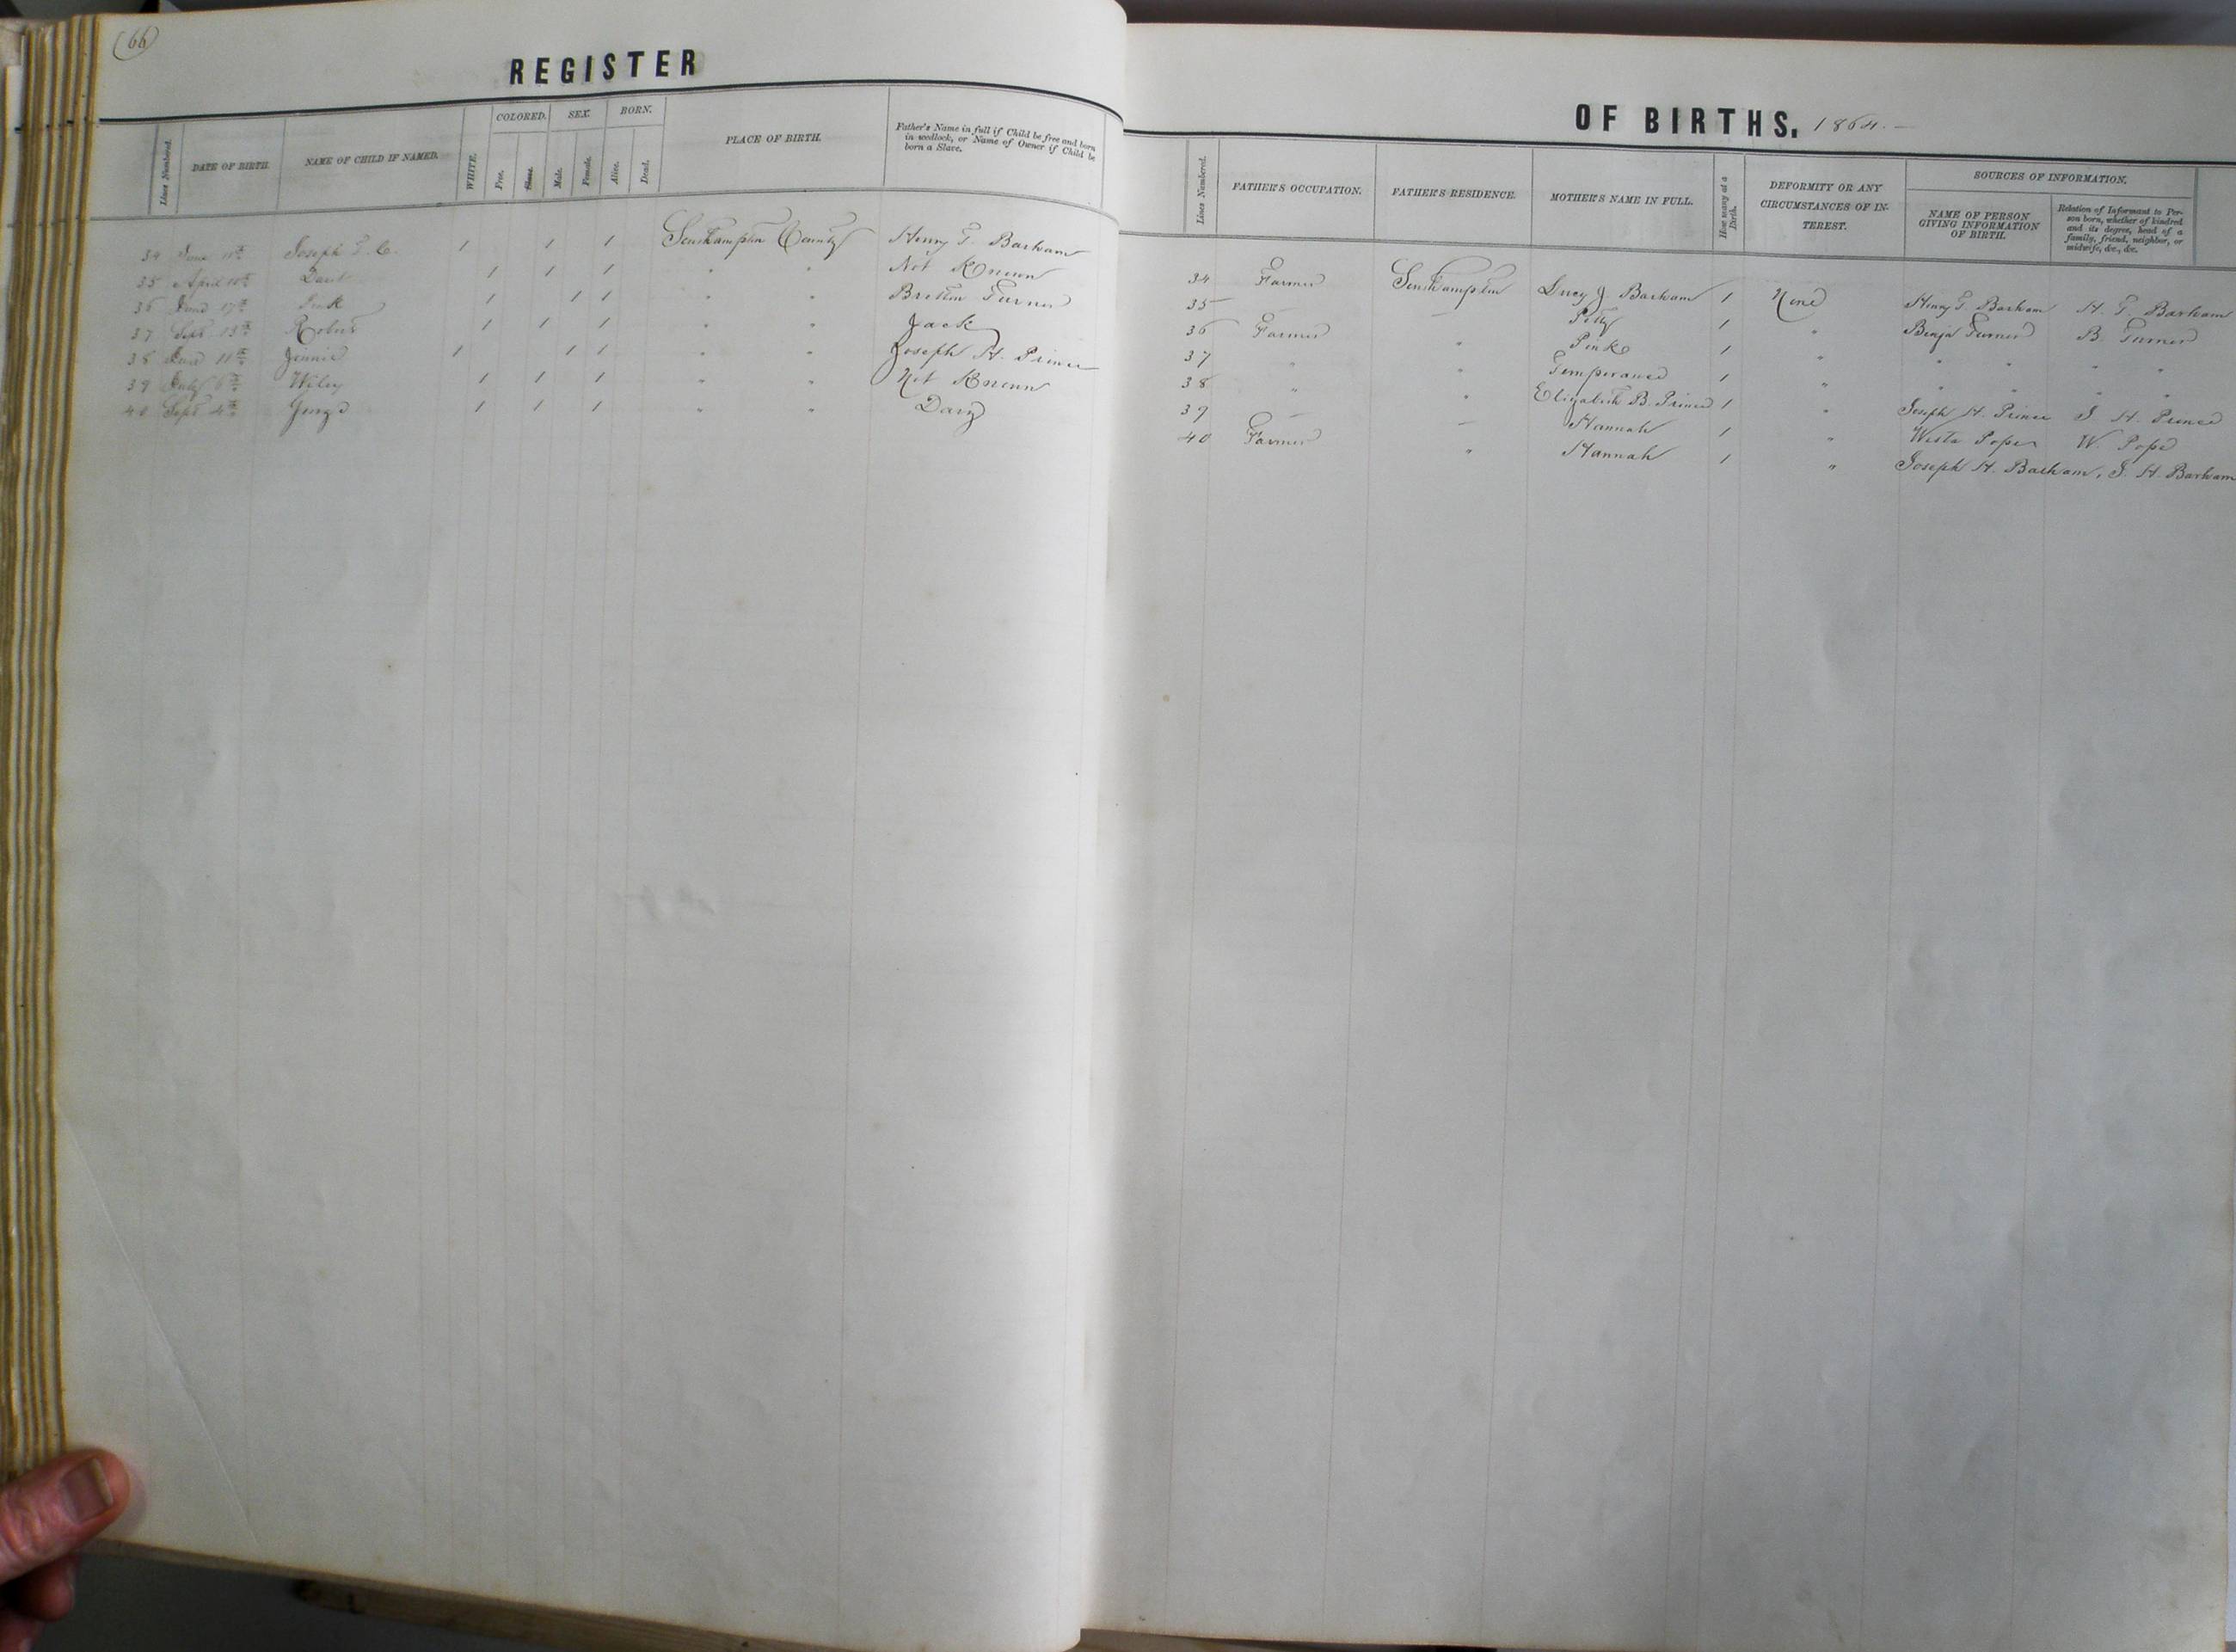 (66)
REGISTER
Lines Numbered.
DATE OF BIRTH.
NAME OF CHILD IF NAMED.
WHITE.
COLORED.
Free.
Slave.
SEX.
Male.
Female.
BORN.
Alive.
Dead.
PLACE OF BIRTH.
Father's Name in full if Child be free and born
in wedlock, or Name of Owner if Child be
born a Slave.
34 June 11th Joseph T. C. 1 1 1 Southampton County Henry T. Barham
35 April 10th 1 1 1 " " Not Known
36 June 17th Pink 1 1 1 " " Turner
37 Sept 13th Robert 1 1 1 " " Jack
38 June 11th Jennie 1 1 1 " " Joseph H. Prince
39 July 6th Wiley 1 1 1 " " Not Known
40 Sept 4th George 1 1 1 " "
OF BIRTHS, 1864.—
Lines Numbered.
FATHER'S OCCUPATION.
FATHER'S RESIDENCE.
MOTHER'S NAME IN FULL.
How many at a
Birth.
DEFORMITY OR ANY
CIRCUMSTANCES OF IN-
TEREST.
SOURCES OF INFORMATION.
NAME OF PERSON
GIVING INFORMATION
OF BIRTH.
Relation of Informant to Per-
son born, whether of kindred
and its degree, head of a
family, friend, neighbor, or
midwife, &c., &c.
34 Farmer Southampton Lucy J Barham 1 None Henry T Barham H. T. Barham
35 — — 1 " Benja Turner B. Turner
36 Farmer " Pink 1 " " " " "
37 " " Temperance 1 " " " " "
38 " " Elizabeth B. Prince 1 " Joseph H. Prince J. H. Prince
39 — — Hannah 1 " Pope W. Pope
40 Farmer " Hannah 1 " Joseph H. Barham, J. H. Barham